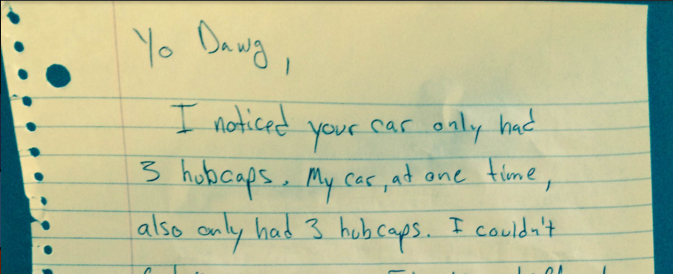 Yo Dawg,
I noticed your car only had
3 hubcaps. My car, at one time,
also only had 3 hubcaps. I couldn't